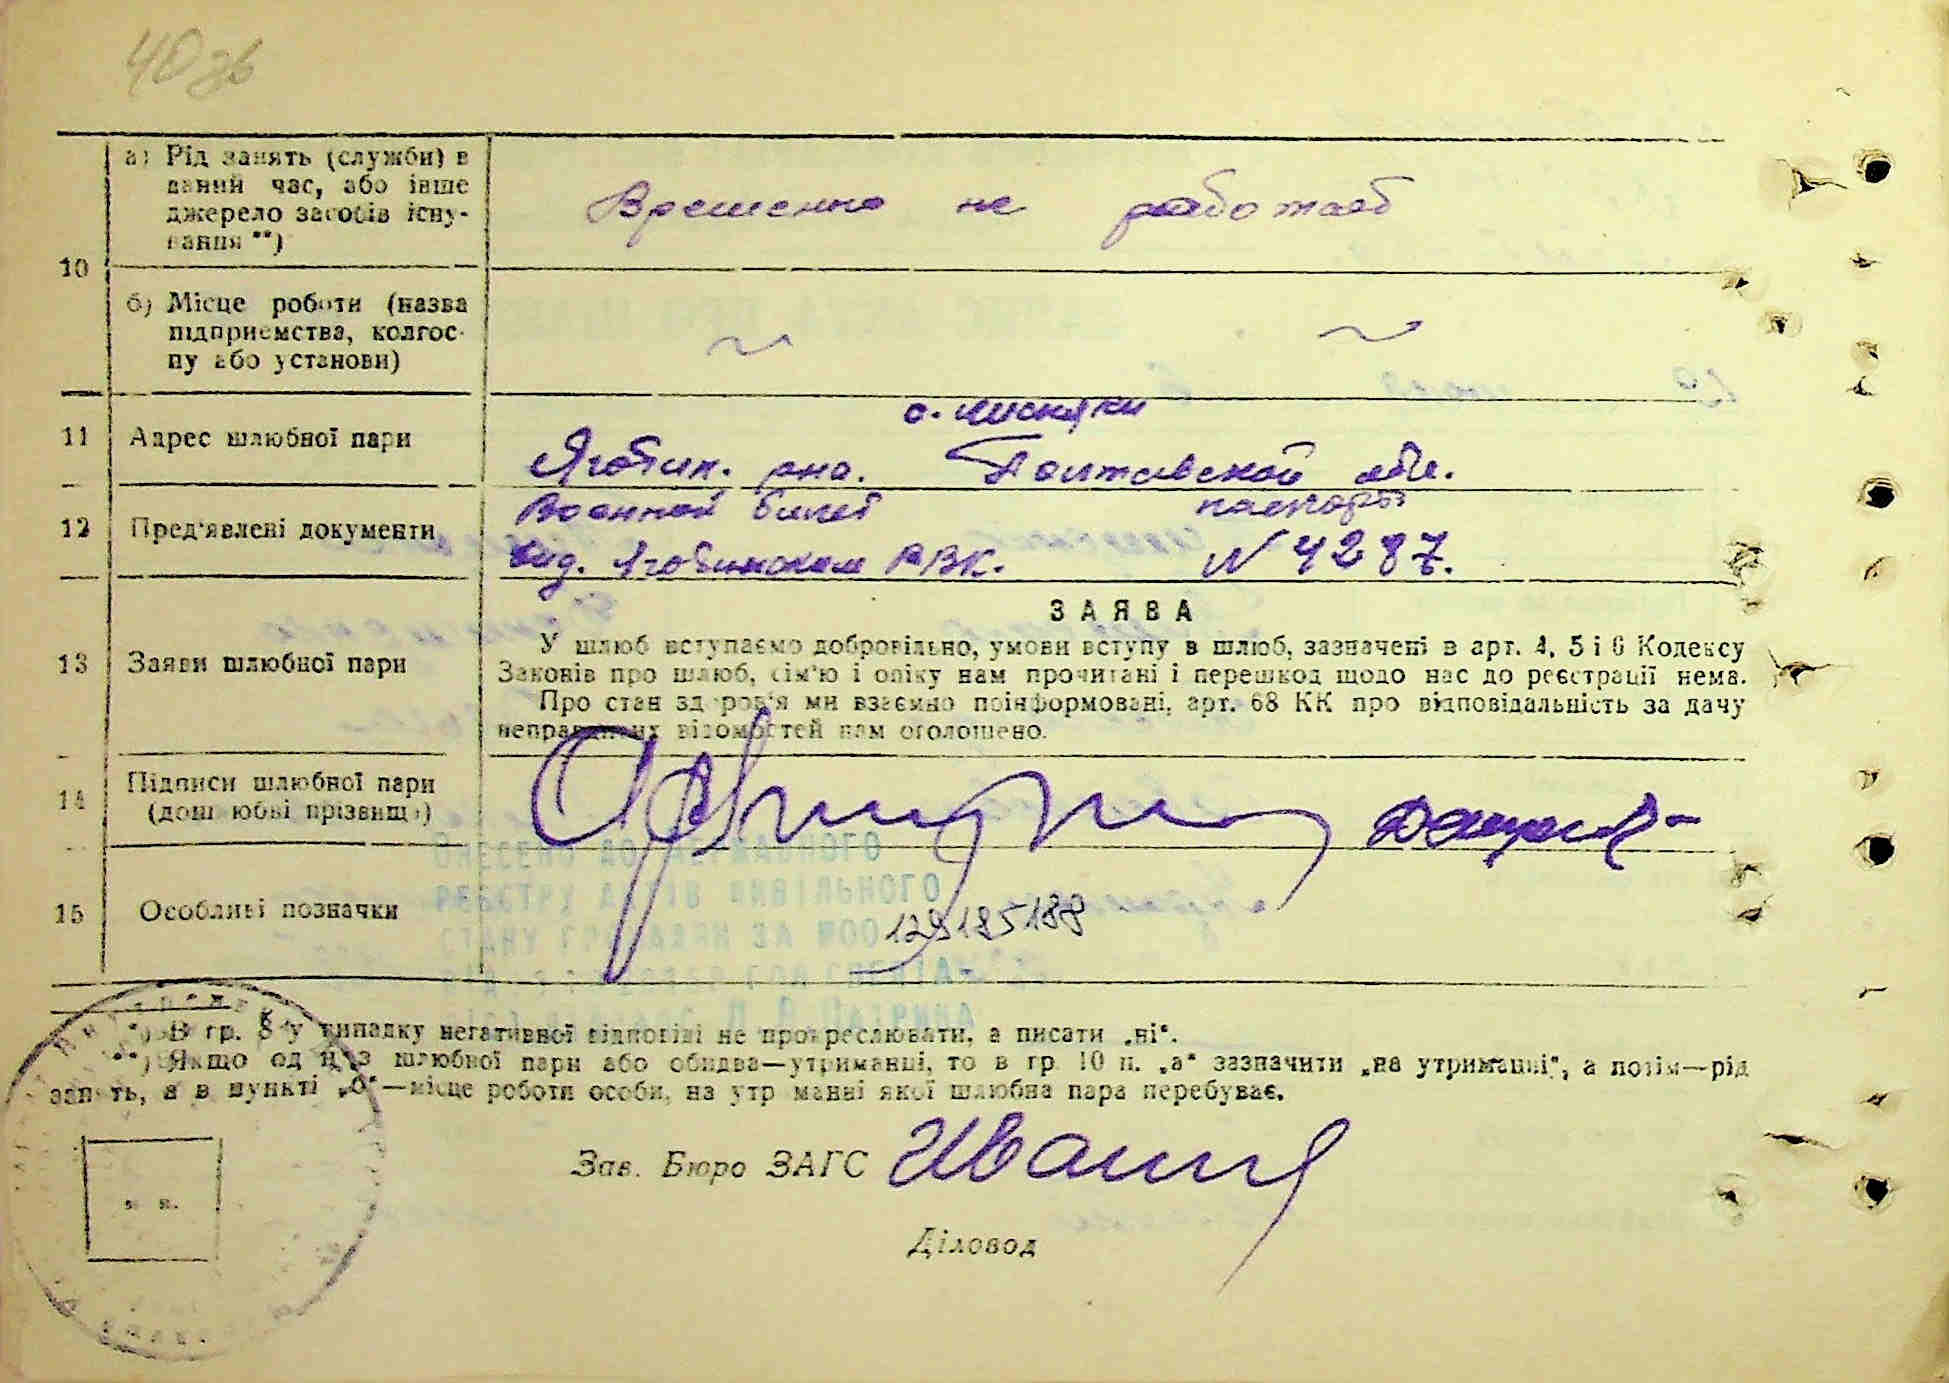 40 зв
10
а) Рід занять (служби) в
даний час, або інше
джерело засобів існу-
вання **)
Временно не работает
б) Місце роботи (назва
підприємства, колгос-
пу або установи)
11
Адрес шлюбної пари
Яготин. рна. Полтавской обл.
12
Пред'явлені документи
Военный билет
паспорт
выд. Яготинским РВК.
N 4287.
13
Заяви шлюбної пари
ЗАЯВА
У шлюб вступаємо добровільно, умови вступу в шлюб, зазначені в арт. 4, 5 і 6 Кодексу
Законів про шлюб, сім'ю і опіку нам прочитані і перешкод щодо нас до реєстрації нема.
Про стан здоров'я ми взаємно поінформовані, арт. 68 КК про відповідальність за дачу
неправдивих відомостей нам оголошено.
14
Підписи шлюбної пари
(дошлюбні прізвища)
15
Особливі позначки
129185188
*) В гр. 8 у випадку негативної відповіді не прокреслювати, а писати „ні“.
**) Якщо один з шлюбної пари або обидва—утриманці, то в гр. 10 п. „а“ зазначити „на утриманні“, а потім—рід
занять, а в пункті „б“—місце роботи особи, на утриманні якої шлюбна пара перебуває.
Зав. Бюро ЗАГС
Діловод